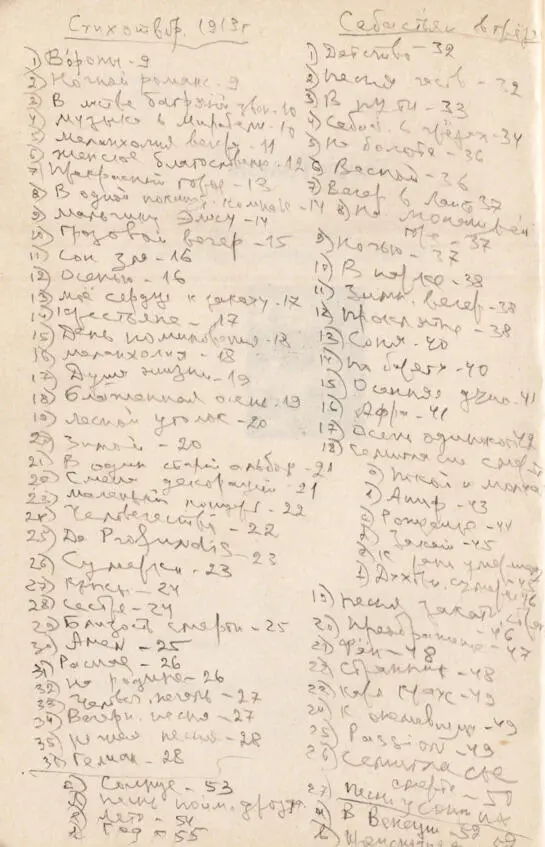 Стихотвор. 1913 г
1) Вороны - 9
2) Ночной романс - 9
3) В листве багряной звон - 10
4) Музыка в Мирабель - 10
5) Меланхолия вечера - 11
6) Женское благословение - 12
7) Прекрасный город - 13
8) В одной покинут. комнате - 14
9) Мальчику Элису - 14
10) Грозовой вечер - 15
11) Сон зла - 16
12) Осенью - 16
13) Моё сердце к закату - 17
14) Крестьяне - 17
15) День поминовения - 18
16) Меланхолия - 18
17) Душа жизни - 19
18) Блаженная осень - 19
19) Лесной уголок - 20
20) Зимой - 20
21) В один старый альбом - 21
22) Смена декораций - 21
23) Маленький концерт - 22
24) Человечество - 22
25) De Profundis - 23
26) Сумерки - 23
27) Крысы - 24
28) Сестре - 24
29) Близость смерти - 25
30) Амен - 25
31) Распад - 26
32) На родине - 26
33) Человеч. печаль - 27
34) Вечерн. песня - 27
35) песня - 28
36) Гелиан - 28
Солнце - 53
Лето - 54
Год - 55
Себастьян в грёз
1) Детство - 32
2) Песня часов - 32
3) В пути - 33
4) Себаст. в грёзах - 34
5) На болоте - 36
6) Весной - 36
7) Вечер в Лансе 37
8) На
горе - 37
9) Ночью - 37
10) В парке - 38
11) Зимн. вечер - 38
12) Проклятые - 38
13) Соня - 40
14) На берегу - 40
15) Осенняя душа - 41
16) Афра - 41
17) Осень одинокого 42
18) Семигласие смерти
Покой и молчание
Аниф - 43
Рождение - 44
Закат - 45
К рано умершему
Духовн. сумерки 46
19) Песня закатн. страны
- 46
20) Преображение - 47
21) Фён - 48
22) Странник - 48
23) Карл Краус - 49
24) К онемевшим - 49
25) Passion - 49
26) Семигласие
смерти - 50
27)
В Венеции - 52